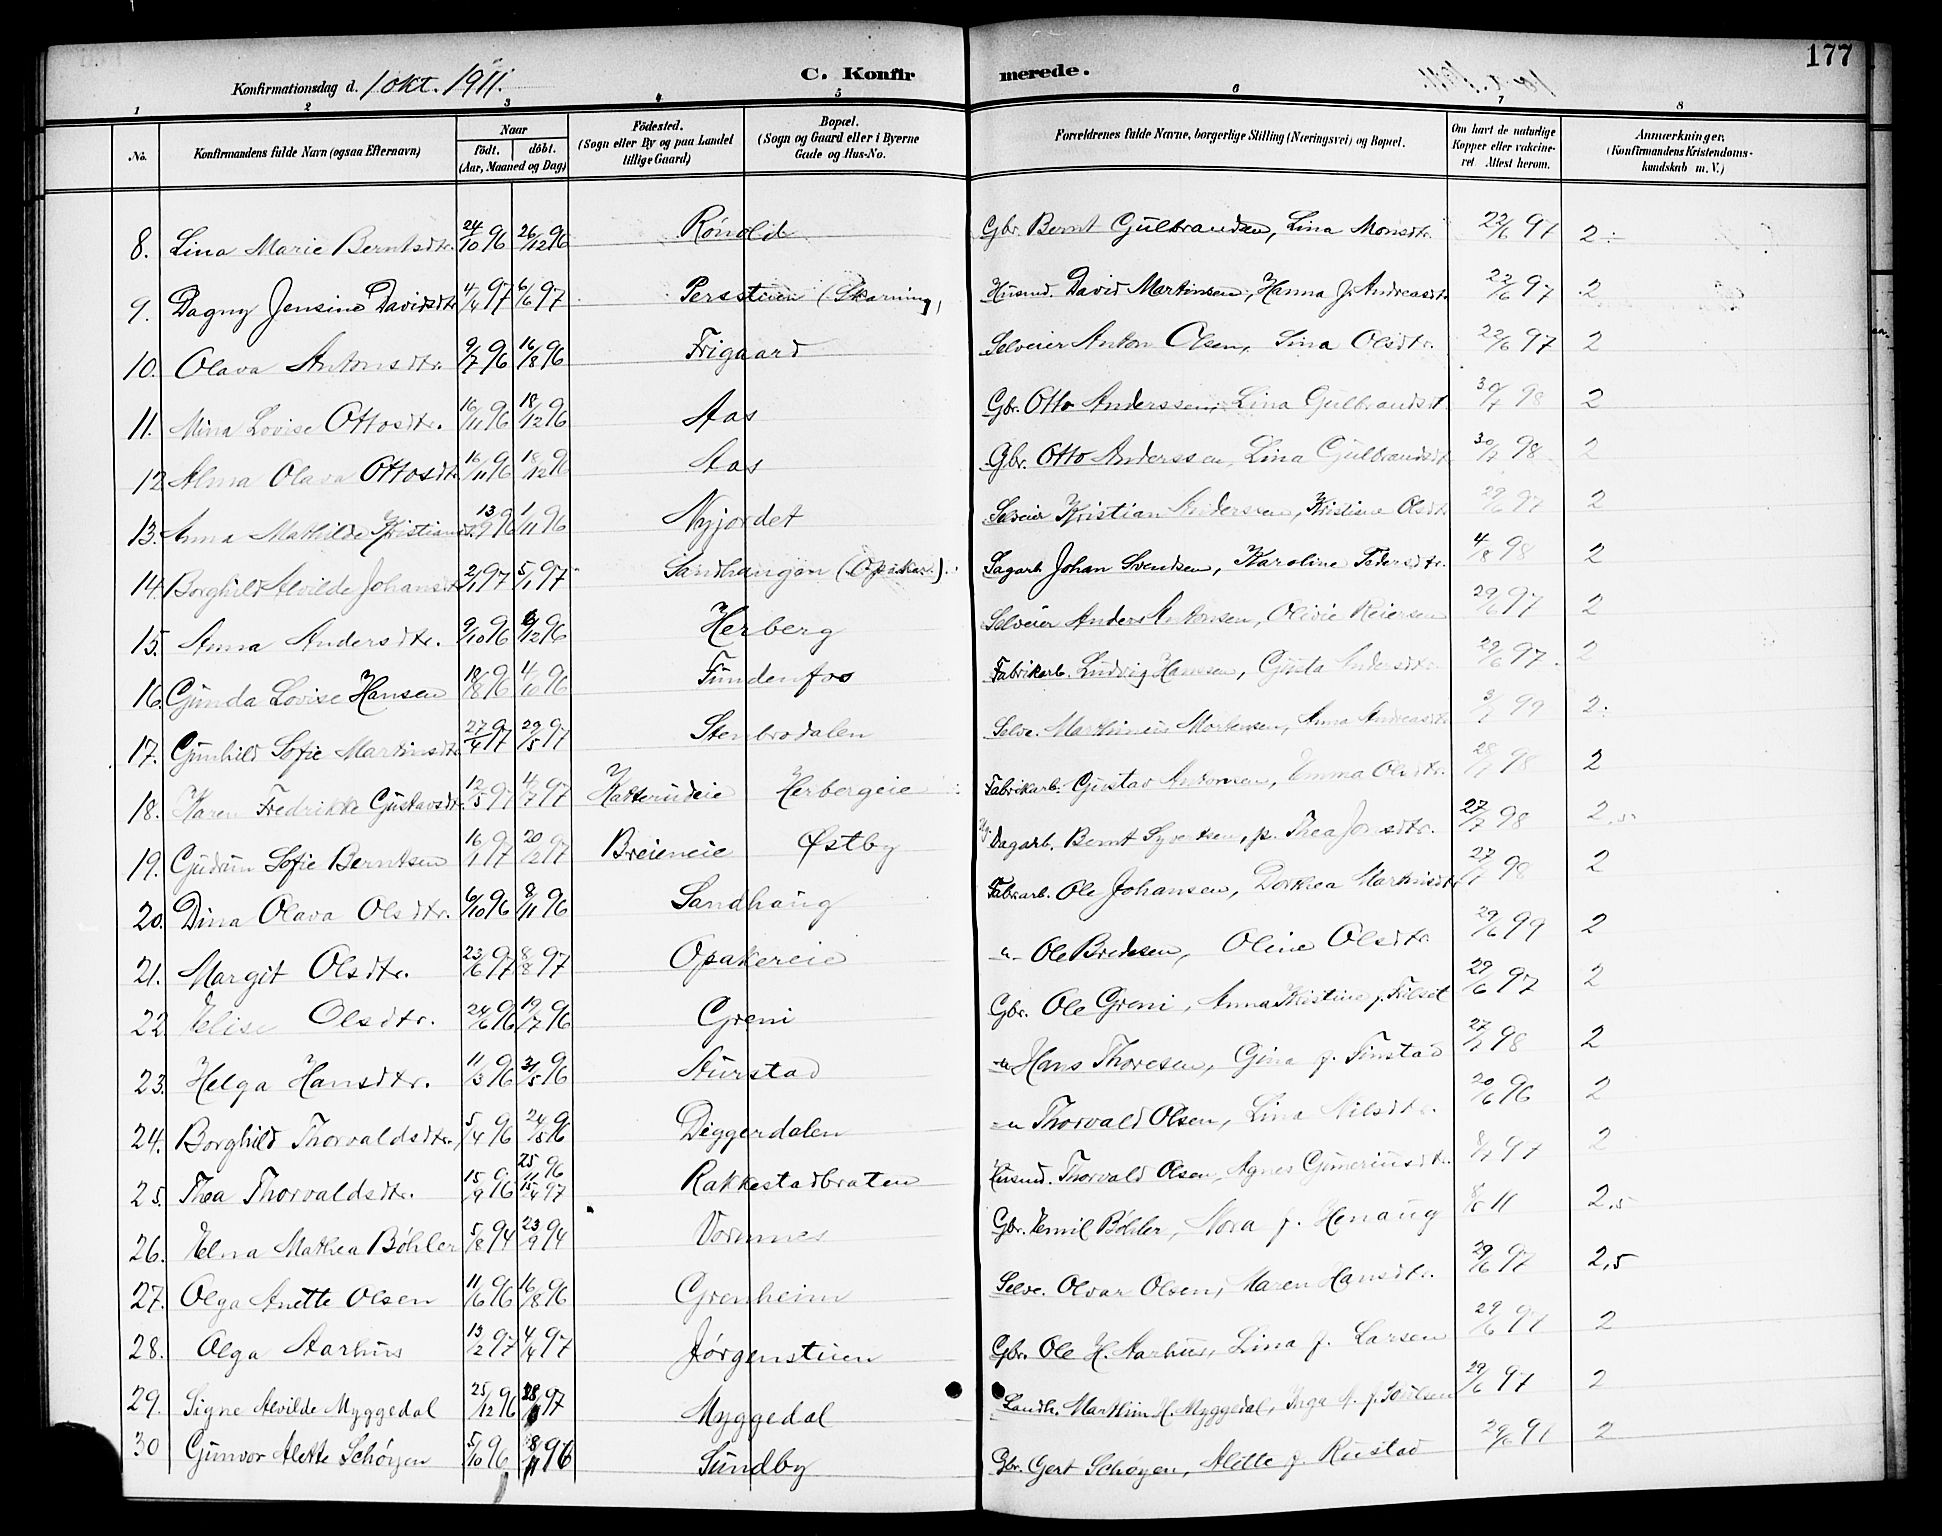 177
Konfirmationsdag d. 1 okt. 1911.
C. Konfirmerede.
1 2 3 4 5 6 7 8
No.
Konfirmandens fulde Navn (ogsaa Efternavn)
Naar
födt. döbt.
(Aar, Maaned og Dag)
Födested.
(Sogn eller By og paa Landet
tillige Gaard)
Bopæl.
(Sogn og Gaard eller i Byerne
Gade og Hus-No.
Forældrenes fulde Navne, borgerlige Stilling (Næringsvei) og Bopæl.
Om havt de naturlige
Kopper eller vakcine-
ret. Attest herom.
Anmærkninger.
(Konfirmandens Kristendoms-
kundskab m. V.)
8. Lina Marie Berntsdtr. 24/10 96 26/12 96 Rönold Gbr. Bernt Gulbrandsen, Lina Monsdtr. 22/6 97 2÷
9. Dagny Jensine Davidsdtr 4/4 97 6/6 97 Persstuen (Skarning) Husmd. David Martinsen, Hanna f. Andreasdtr 22/6 97 2
10. Olava Antonsdtr. 9/7 96 16/8 96 Frigaard Selveier Anton Olsen, Lina Olsdtr. 22/6 97 2
11. Mina Lovise Ottosdtr. 16/11 96 18/12 96 Aas Gbr. Otto Anderssen, Lina Gulbrandsdt. 30/7 98 2
12 Alma Olava Ottosdtr 16/11 96 18/12 96 Aas Gbr. Otto Anderssen, Lina Gulbrandsdt 30/7 98 2
13. Anna Mathilde Kristiansdtr. 13/9 96 1/11 96 Nyjordet Selveier Kristian Anderssen, Kristine Olsdtr 29/6 97 2
14. Borghild Alvilde Johansdtr 2/1 97 5/1 97 Sandhaugen (Opaker). Sagarb. Johan Svendsen, Karoline Pedersdtr. 4/8 98 2
15. Anna Andersdtr. 9/10 96 6/12 96 Herberg Selveier Anders Antonsen, Olivie Reiersen 29/6 97 2
16. Gunda Lovise Hansen 18/8 96 4/10 96 Fundenfos Fabrikarb. Ludvig Hanssen, Gusta Andersdtr. 29/6 97. 2
17. Gunhild Sofie Martinsdtr 27/4 97 29/5 97 Stenbrodalen Selve. Martinius Mortensen, Anna Andreasdtr 3/7 99 2÷
18. Karen Fredrikke Gustavsdtr 12/5 97 4/7 97 Katterudeie Herbergeie Fabrikarb. Gustav Antonsen, Emma Olsdtr. 28/7 98 2
19. Gudrun Sofie Berntsen 16/1 97 20/2 97 Breieneie Østby Ug. Dagarb. Bernt Syvertsen, p. Thea Jonsdtr. 27/7 98 2,5
20. Dina Olava Olsdtr. 6/10 96 8/11 96 Sandhaug Fabrarb. Ole Johansen, Dorthea Martinsdtr 27/7 98 2
21. Margit Olsdtr. 23/6 97 8/8 97 Opakereie -"- Ole Bredesen, Oline Olsdtr 29/6 99 2
22 Elise Olsdtr. 24/6 96 19/7 96 Greni Gbr. Ole Greni, Anna Kristine f. Filset 29/6 97 2
23. Helga Hansdtr. 11/3 96 31/5 96 Aurstad -"- Hans Thoresen, Gina f. Finstad 27/7 98 2
24. Borghild Thorvaldsdtr. 5/4 96 24/5 96 Diggerdalen -"- Thorvald Olsen, Lina Nilsdtr. 20/6 96 2
25. Thea Thorvaldsdtr. 15/9 96 25/11 96 15/4 97 Rakkestadbraten Husmd. Thorvald Olsen, Agnes Guneriusdtr. 8/7 97 2
26. Elna Mathea Böhler 5/8 94 23/9 94 Vormnes Gbr. Emil Böhler, Nora f. Henaug 8/8 11 2,5
27. Olga Anette Olsen 11/6 96 16/8 96 Grenheim Selve. Olvar Olsen, Maren Hansdtr. 29/6 97 2,5
28. Olga Aarhus 13/2 97 4/4 97 Jörgenstuen Gbr. Ole H. Aarhus, Lina f. Larsen 29/6 97 2
29. Signe Alvilde Myggedal 25/12 96 28/ 97 Myggedal Landh. Marthin H. Myggedal, Inga A. f. Poulsen 29/6 97 2
30 Gunvor Alette Schöyen 5/10 96 8/11 96 Sundby Gbr. Gert Schöyen, Alette f. Rustad 29/6 97 2